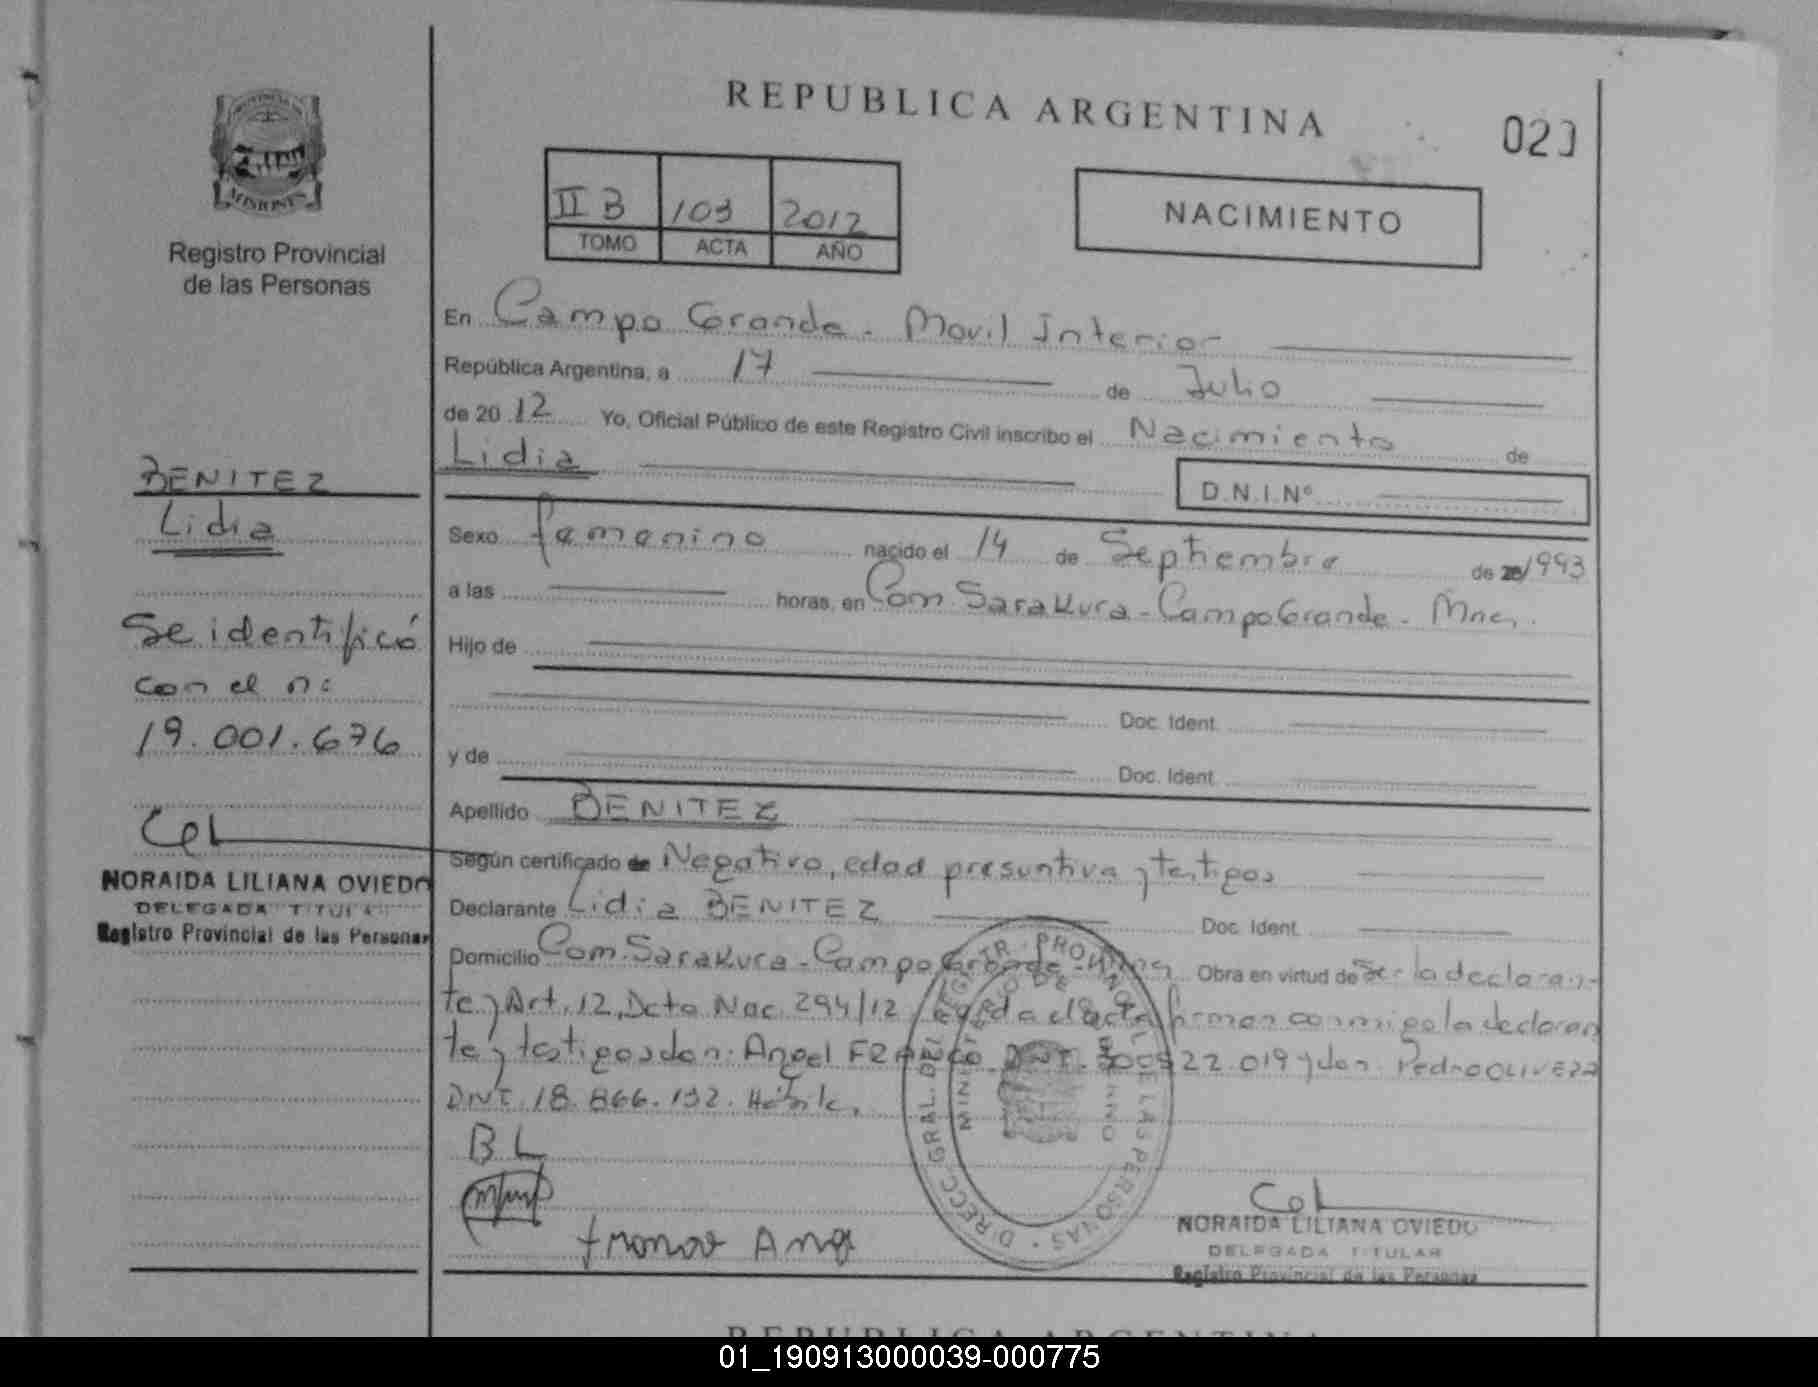 REPUBLICA ARGENTINA
PROVINCIA DE
MISIONES
Registro Provincial
de las Personas
II B 103 2012
TOMO ACTA AÑO
NACIMIENTO
En Campo Grande - Movil Interior
República Argentina, a 17 de Julio
de 2012 Yo, Oficial Público de este Registro Civil inscribo el Nacimiento de
Lidia
D.N.I.Nº
Sexo femenino nacido el 14 de Septiembre de 1993
a las horas, en Com. Sarakura - Campo Grande - Mnes.
Hijo de
Doc. Ident.
y de Doc. Ident.
Apellido BENITEZ
Según certificado de Negativo, edad presuntiva y testigos
Declarante Lidia BENITEZ Doc. Ident.
Domicilio Com. Sarakura - Campo Grande - Mnes Obra en virtud de Ser la declaran-
te y Art. 12, Dcto Nac. 294/12 Leyda el acta firman conmigo la declaran
te y testigos don: Angel FRANCO DNI. 22.019 y don Pedro OLIVERA
DNI. 18.866.132. Hábiles.
B L
Ang
NORAIDA LILIANA OVIEDO
DELEGADA TITULAR
Registro Provincial de las Personas
DIRECC. GRAL. DEL REGISTR. PROVINCIAL DE LAS PERSONAS
MINISTERIO DE GOBIERNO
BENITEZ
Lidia
Se identificó
con el nº
19.001.676
NORAIDA LILIANA OVIEDO
DELEGADA TITULAR
Registro Provincial de las Personas
01_190913000039-000775